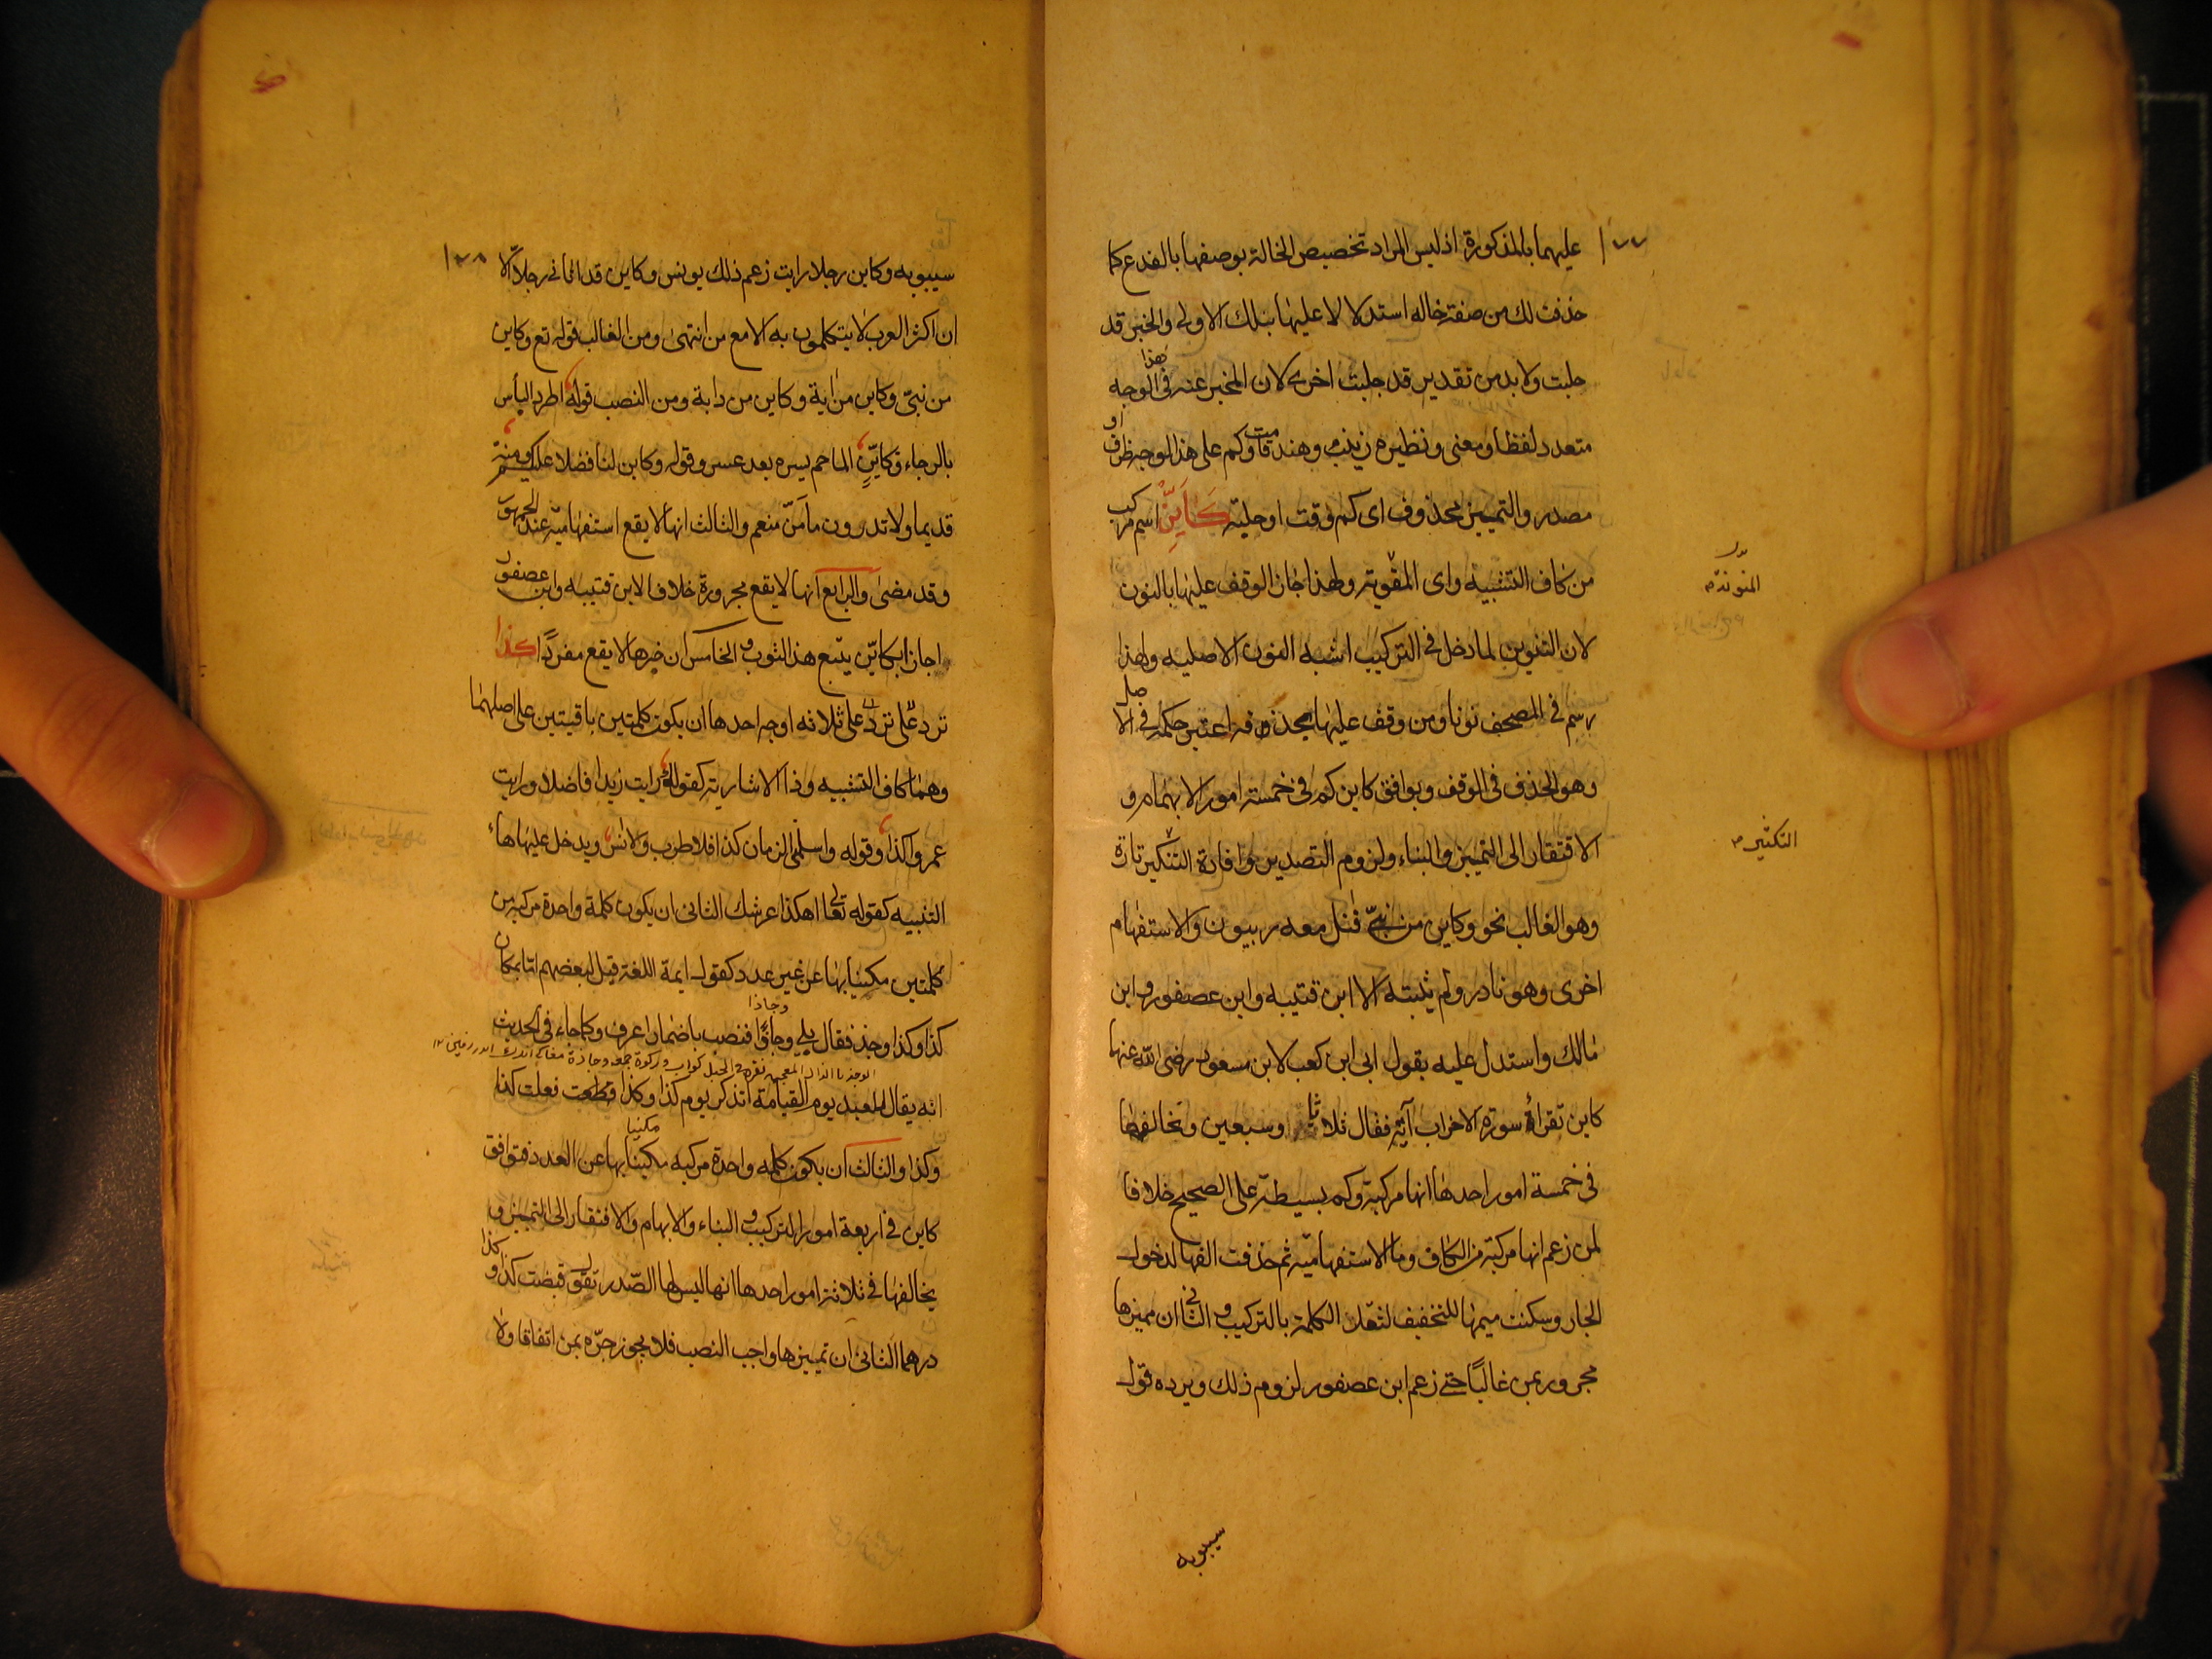 ١٧٧
عليهما بالمذكورة اذ ليس المراد تخصيص الخالة بوصفها بالفدع كما
حذفت لك من صفة خاله استدلالا عليها بلك الاولى والخبر قد
حلبت ولا بد من تقدير قد حلبت اخرى لان المخبر عنه فى هذا الوجه
متعدد لفظا ومعنى ونظيره زينب وهند قامت وكم على هذا الوجه ظرف او
مصدر والتمييز محذوف اى كم وقت او حلبة كَاَيِّنْ اسم مركب
من كاف التشبيه واى المقوية ولهذا جاز الوقف عليها بالنون
المنونة
لان التنوين لما دخل فى التركيب اشبه النون الاصليه ولهذا
رسم فى المصحف نونا ومن وقف عليها بحذفه اعتبر حكمه فى الاصل
وهو الحذف فى الوقف ويوافق كاين كم فى خمسة امور الابهام و
الافتقار الى التمييز والبناء ولزوم التصدير وافادة التنكير تارة
التكثير م
وهو الغالب نحو وكاين من نبىّ قتل معه ربيون والاستفهام
اخرى وهو نادر ولم يثبته الا ابن قتيبه وابن عصفور وابن
مالك واستدل عليه بقول ابى ابن كعب لابن مسعود رضى الله عنها
كاين تقرا سورة الاحزاب آية فقال ثلاثا وسبعين وتخالفها
فى خمسة امور احدها انها مركبة وكم بسيطة على الصحيح خلافا
لمن زعم انها مركبة من الكاف وما الاستفهامية ثم حذفت الفها لدخول
الجار وسكنت ميمها للتخفيف لثقل الكلمة بالتركيب والثانى ان مميزها
مجرور بمن غالبًا حتى زعم ابن عصفور لزوم ذلك ويرده قول
سيبويه
١٧٨
سيبويه وكاين رجلا رايت زعم ذلك يونس وكاين قد اتانى رجلا الّا
ان اكثر العرب لا يتكلمون به الا مع من انتهى ومن الغالب قوله تع وكاين
من نبىّ وكاين من اية وكاين من دابة ومن النصب قوله اطرد الياس
بالرجاء وكايّنٍ الما حم يسره بعد عسر وقوله وكاين لنا فضلا عليكم ومنة
قديما ولا تدرون ما مَنّ منعم والثالث انها لا يقع استفهامية عند الجمهور
وقد مضى والرابع انها لا يقع مجرورة خلافا لابن قتيبه وابن عصفور
اجازا بكايّن يتبع هذا الثوب والخامس ان خبرها لا يقع مفردًا كذا
ترد على ثلاثه اوجه احدها ان يكون كلمتين باقيتين على اصلهما
وهما كاف التشبيه وذا الاشارية كقولك رايت زيدا فاضلا ورايت
عمروا كذا وقوله واسلمنى الزمان كذا فلا طرب ولا انس ويدخل عليها هاء
التنبيه كقوله تعالى اهكذا عرشك الثانى ان يكون كلمة واحدة مركبة من
كلمتين مكنيا بها عن غير عدد كقول ايمة اللغة قيل لبعضهم اما بمكان
كذا وكذا وجذ فقال بلى وجاذا فنصب باضمار اعرف وكما جاء فى الحديث
انه يقال للعبد يوم القيامة اتذكر يوم كذا وكذا فعلت كذا
وكذا والثالث ان يكون كلمه واحدة مركبه مكنيا بها عن العدد فتوافق
كاين فى اربعة امور التركيب والبناء والابهام والافتقار الى التمييز و
يخالفها فى ثلاثة امور احدها انها ليس لها الصّدر تقول قبضت كذا وكذا
درهما الثانى ان تمييزها واجب النصب فلا يجوز جرّه بمن اتفاقا ولا